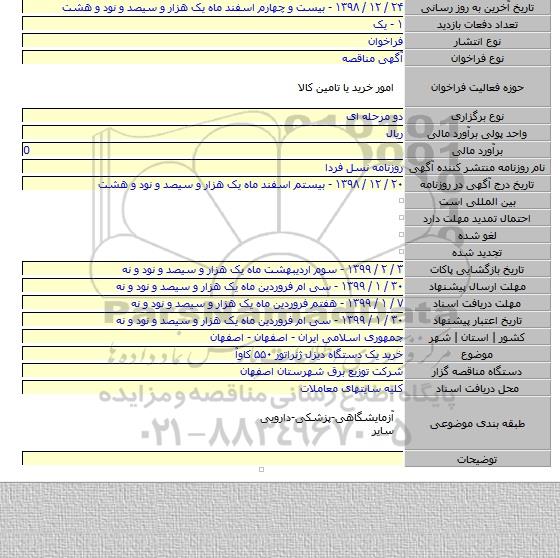 تاریخ آخرین به روز رسانی ۲۴ / ۱۲ / ۱۳۹۸ - بیست و چهارم اسفند ماه یک هزار و سیصد و نود و هشت
تعداد دفعات بازدید ۱ - یک
نوع انتشار فراخوان
نوع فراخوان آگهی مناقصه
حوزه فعالیت فراخوان امور خرید یا تامین کالا
نوع برگزاری دو مرحله ای
واحد پولی برآورد مالی ریال
برآورد مالی 0
نام روزنامه منتشر کننده آگهی روزنامه نسل فردا
تاریخ درج آگهی در روزنامه ۲۰ / ۱۲ / ۱۳۹۸ - بیستم اسفند ماه یک هزار و سیصد و نود و هشت
بین المللی است
احتمال تمدید مهلت دارد
لغو شده
تجدید شده
تاریخ بازگشایی پاکات ۳ / ۲ / ۱۳۹۹ - سوم اردیبهشت ماه یک هزار و سیصد و نود و نه
مهلت ارسال پیشنهاد ۳۰ / ۱ / ۱۳۹۹ - سی ام فروردین ماه یک هزار و سیصد و نود و نه
مهلت دریافت اسناد ۷ / ۱ / ۱۳۹۹ - هفتم فروردین ماه یک هزار و سیصد و نود و نه
تاریخ اعتبار پیشنهاد ۳۰ / ۱ / ۱۳۹۹ - سی ام فروردین ماه یک هزار و سیصد و نود و نه
کشور | استان | شهر جمهوری اسلامی ایران - اصفهان - اصفهان
موضوع خرید یک دستگاه دیزل ژنراتور ۵۵۰ کاوآ
دستگاه مناقصه گزار شرکت توزیع برق شهرستان اصفهان
محل دریافت اسناد کلیه سایتهای معاملات
طبقه بندی موضوعی آزمایشگاهی-پزشکی-دارویی
سایر
توضیحات
ParsNamadData
پایگاه اطلاع رسانی مناقصه و مزایده
۰۲۱-۸۸۳۴۹۶۷۰-۵